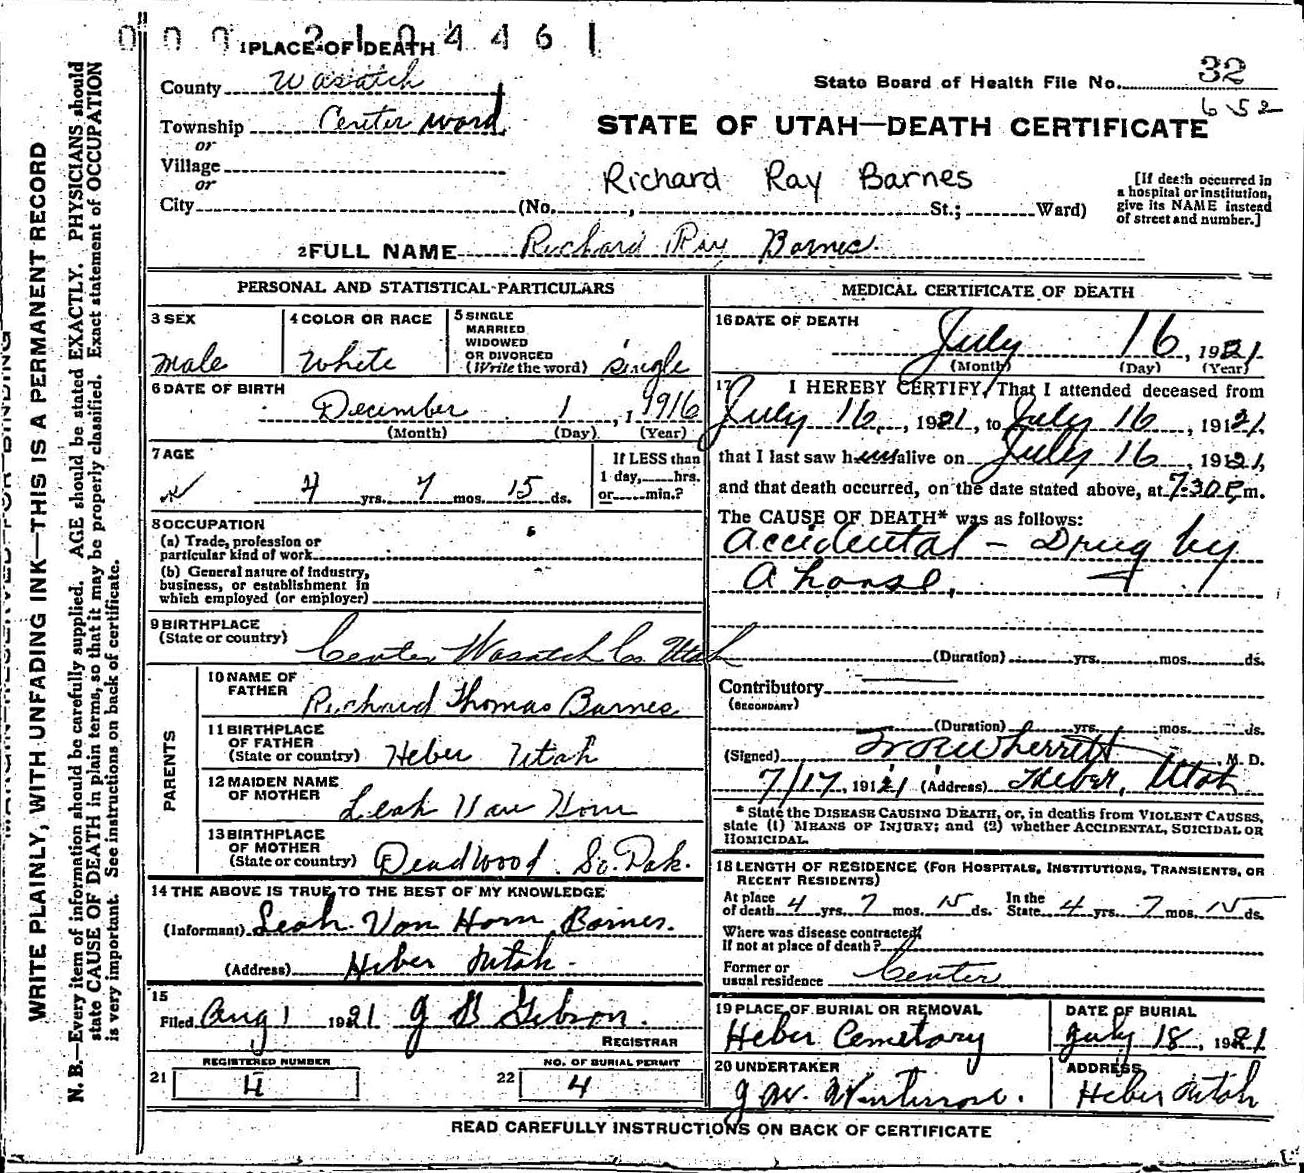 000 210446 1
1 PLACE OF DEATH
County Wasatch
Township Center Ward
or
Village
or
City (No. , St.; Ward)
State Board of Health File No. 32
652
STATE OF UTAH—DEATH CERTIFICATE
Richard Ray Barnes
[If death occurred in
a hospital or institution,
give its NAME instead
of street and number.]
2 FULL NAME Richard Ray Barnes.
WRITE PLAINLY, WITH UNFADING INK—THIS IS A PERMANENT RECORD
N. B.—Every item of information should be carefully supplied. AGE should be stated EXACTLY. PHYSICIANS should
state CAUSE OF DEATH in plain terms, so that it may be properly classified. Exact statement of OCCUPATION
is very important. See instructions on back of certificate.
PERSONAL AND STATISTICAL PARTICULARS
3 SEX
male
4 COLOR OR RACE
White
5 SINGLE
MARRIED
WIDOWED
OR DIVORCED
(Write the word) single
6 DATE OF BIRTH
December 1, 1916
(Month) (Day) (Year)
7 AGE
4 yrs. 7 mos. 15 ds.
If LESS than
1 day, hrs.
or min.?
8 OCCUPATION
(a) Trade, profession or
particular kind of work
(b) General nature of industry,
business, or establishment in
which employed (or employer)
9 BIRTHPLACE
(State or country) Center Wasatch Co. Utah
PARENTS
10 NAME OF
FATHER Richard Thomas Barnes
11 BIRTHPLACE
OF FATHER
(State or country) Heber Utah
12 MAIDEN NAME
OF MOTHER Leah Van Horn
13 BIRTHPLACE
OF MOTHER
(State or country) Deadwood. So. Dak.
14 THE ABOVE IS TRUE TO THE BEST OF MY KNOWLEDGE
(Informant) Leah Van Horn Barnes.
(Address) Heber Utah.
15
Filed Aug 1 1921 J B Gibson.
REGISTRAR
REGISTERED NUMBER
21 4
NO. OF BURIAL PERMIT
22 4
MEDICAL CERTIFICATE OF DEATH
16 DATE OF DEATH
July 16, 1921
(Month) (Day) (Year)
17 I HEREBY CERTIFY, That I attended deceased from
July 16, 1921, to July 16, 1921,
that I last saw him alive on July 16, 1921,
and that death occurred, on the date stated above, at 7:30 P.m.
The CAUSE OF DEATH* was as follows:
Accidental – Drug by
a horse,
(Duration) yrs. mos. ds.
Contributory
(SECONDARY)
(Duration) yrs. mos. ds.
(Signed) Wherritt M. D.
7/17, 1921 (Address) Heber, Utah
* State the DISEASE CAUSING DEATH, or, in deaths from VIOLENT CAUSES,
state (1) MEANS OF INJURY; and (2) whether ACCIDENTAL, SUICIDAL OR
HOMICIDAL.
18 LENGTH OF RESIDENCE (FOR HOSPITALS, INSTITUTIONS, TRANSIENTS, OR
RECENT RESIDENTS)
At place
of death 4 yrs. 7 mos. 15 ds. In the
State 4 yrs. 7 mos. 15 ds.
Where was disease contracted
if not at place of death?
Former or
usual residence Center
19 PLACE OF BURIAL OR REMOVAL
Heber Cemetary
DATE OF BURIAL
July 18, 1921
20 UNDERTAKER
ADDRESS
Heber Utah
READ CAREFULLY INSTRUCTIONS ON BACK OF CERTIFICATE